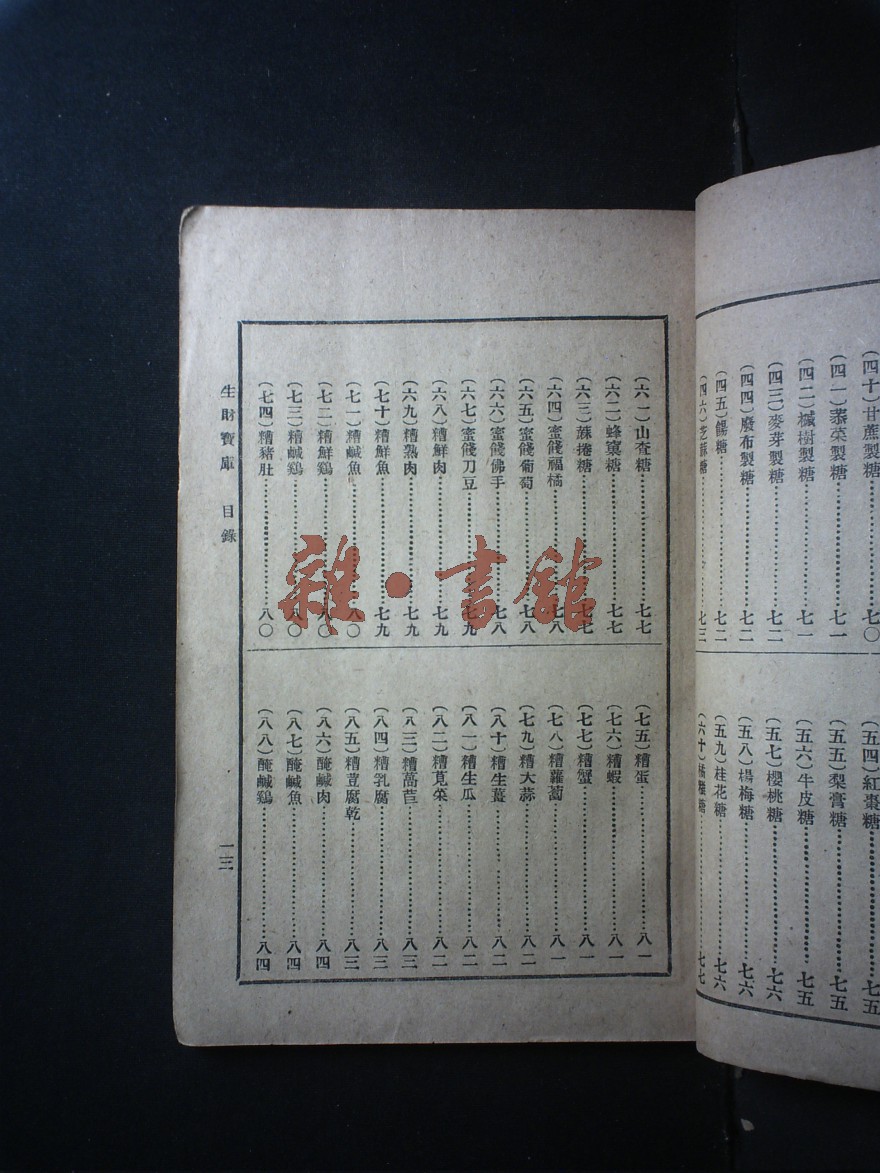 (四十)甘蔗製糖……七〇
(四一)菾菜製糖……七一
(四二)槭樹製糖……七一
(四三)麥芽製糖……七二
(四四)廢布製糖……七二
(四五)餳糖……七二
(四六)芝蔴糖……七三
(五四)紅棗糖……七五
(五五)梨膏糖……七五
(五六)牛皮糖……七五
(五七)櫻桃糖……七六
(五八)楊梅糖……七六
(五九)桂花糖……七六
(六十)橘糖……七七
(六一)山查糖……七七
(六二)蜂窠糖……七七
(六三)蔴捲糖……七七
(六四)蜜餞福橘……七八
(六五)蜜餞葡萄……七八
(六六)蜜餞佛手……七八
(六七)蜜餞刀豆……七九
(六八)糟鮮肉……七九
(六九)糟熟肉……七九
(七十)糟鮮魚……七九
(七一)糟鹹魚……八〇
(七二)糟鮮鷄……八〇
(七三)糟鹹鷄……八〇
(七四)糟豬肚……八〇
(七五)糟蛋……八一
(七六)糟蝦……八一
(七七)糟蟹……八一
(七八)糟蘿蔔……八一
(七九)糟大蒜……八二
(八十)糟生薑……八二
(八一)糟生瓜……八二
(八二)糟莧菜……八二
(八三)糟萵苣……八三
(八四)糟乳腐……八三
(八五)糟荳腐乾……八三
(八六)醃鹹肉……八四
(八七)醃鹹魚……八四
(八八)醃鹹鷄……八四
生財寶庫 目錄 一三
雜·書館